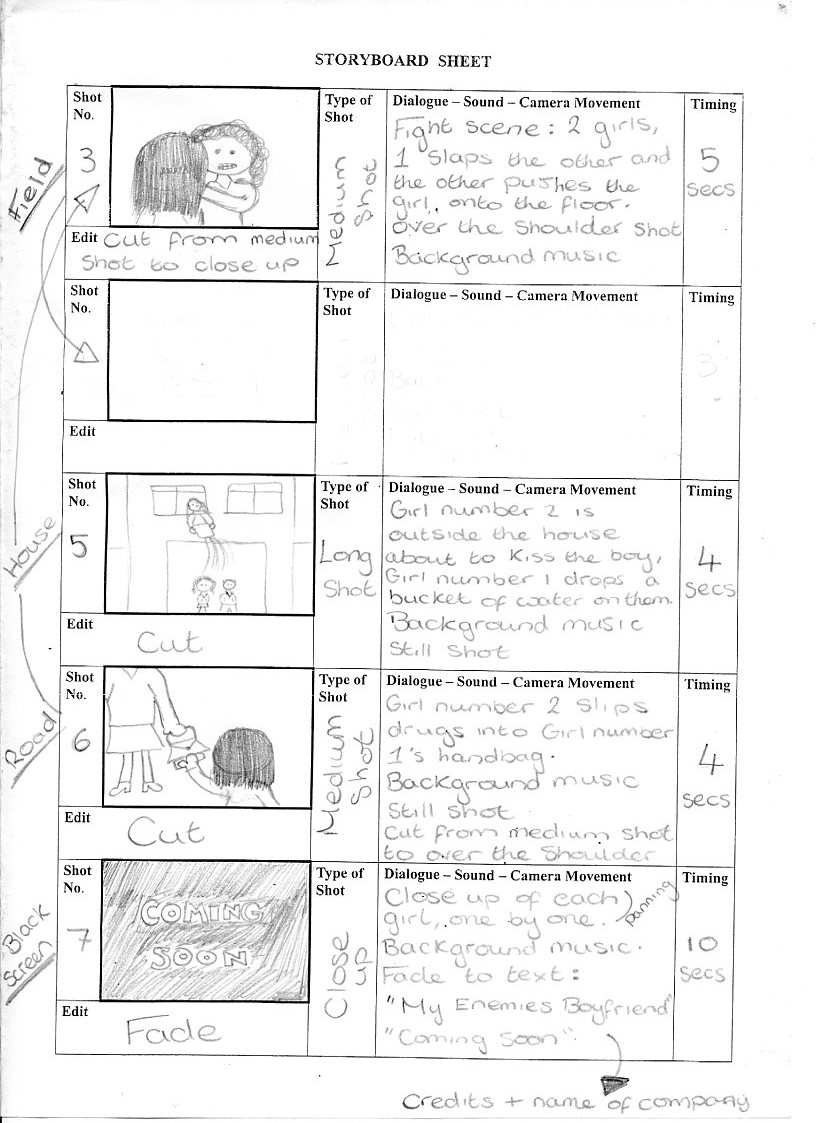 STORYBOARD SHEET
Field
Shot No.
3
Type of Shot
Medium Shot
Dialogue – Sound – Camera Movement
Fight scene: 2 girls,
1 slaps the other and
the other pushes the
girl, onto the floor.
over the shoulder shot
Background music
Timing
5 secs
Edit Cut from medium
shot to close up
Shot No.
Type of Shot
Dialogue – Sound – Camera Movement
Timing
3
Edit
House
Shot No.
5
Type of Shot
Long Shot
Dialogue – Sound – Camera Movement
Girl number 2 is
outside the house
about to kiss the boy,
Girl number 1 drops a
bucket of water on them.
Background music
Still shot
Timing
4 secs
Edit
Cut
Road
Shot No.
6
Type of Shot
Medium Shot
Dialogue – Sound – Camera Movement
Girl number 2 slips
drugs into Girl number
1's handbag.
Background music
Still shot
Cut from medium shot
to over the shoulder
Timing
4 secs
Edit
Cut
Black Screen
Shot No.
7
COMING
SOON
Type of Shot
Close up
Dialogue – Sound – Camera Movement
Close up of each
girl, one by one.
panning
Background music.
Fade to text:
"My Enemies Boyfriend"
"Coming Soon"
Timing
10 secs
Edit
Fade
Credits + name of company